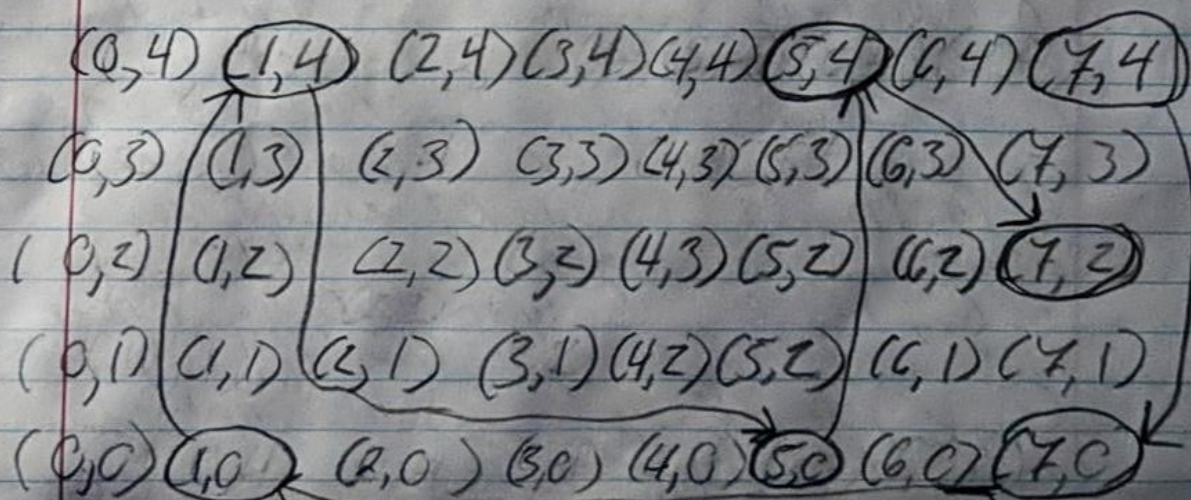 (0,4) (1,4) (2,4) (3,4) (4,4) (5,4) (6,4) (7,4)
(0,3) (1,3) (2,3) (3,3) (4,3) (5,3) (6,3) (7,3)
(0,2) (1,2) (2,2) (3,2) (4,3) (5,2) (6,2) (7,2)
(0,1) (1,1) (2,1) (3,1) (4,2) (5,2) (6,1) (7,1)
(0,0) (1,0) (2,0) (3,0) (4,0) (5,0) (6,0) (7,0)